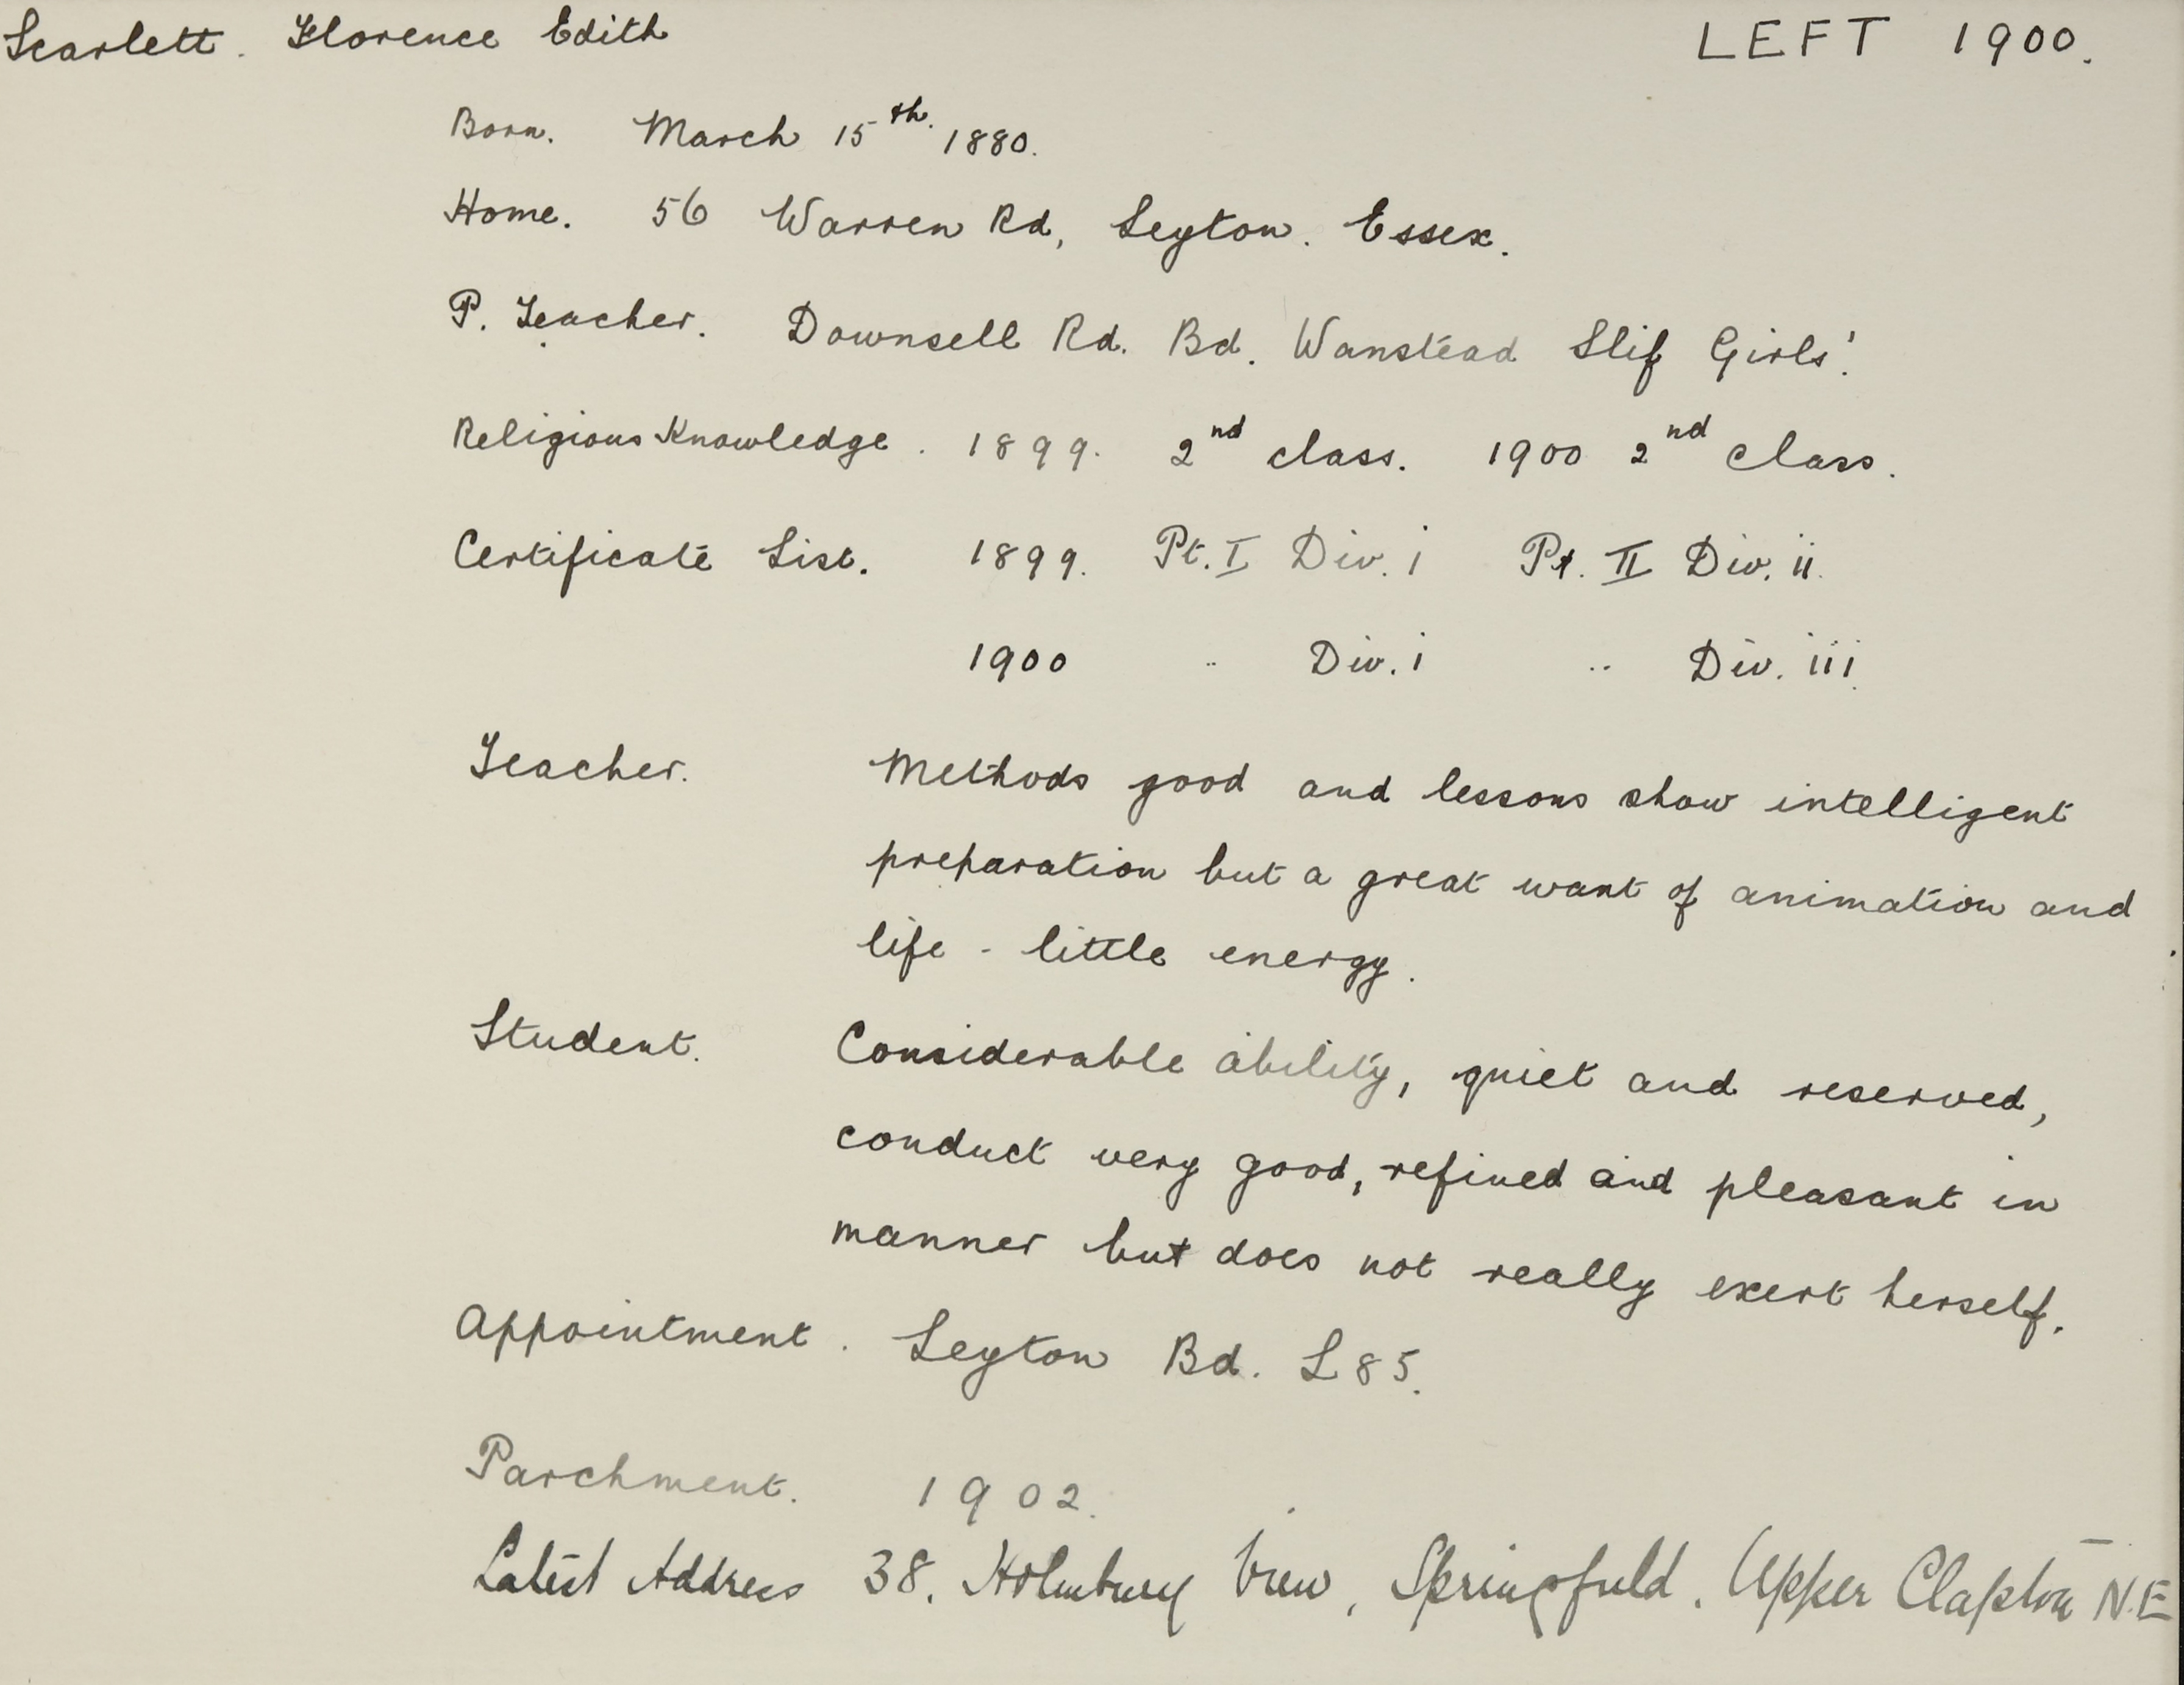 Scarlett. Florence Edith LEFT 1900.
Born. March 15th. 1880.
Home. 56 Warren Rd, Leyton. Essex.
P. Teacher. Downsell Rd. Bd. Wanstead Slip Girls'.
Religious Knowledge. 1899. 2nd class. 1900 2nd class.
Certificate List. 1899. Pt. I Div. i Pt. II Div. ii.
1900 " Div. i " Div. iii.
Teacher. Methods good and lessons show intelligent
preparation but a great want of animation and
life - little energy.
Student. Considerable ability, quiet and reserved,
conduct very good, refined and pleasant in
manner but does not really exert herself.
Appointment. Leyton Bd. £85.
Parchment. 1902.
Latest Address 38. Holmbury View, Springfield. Upper Clapton N.E